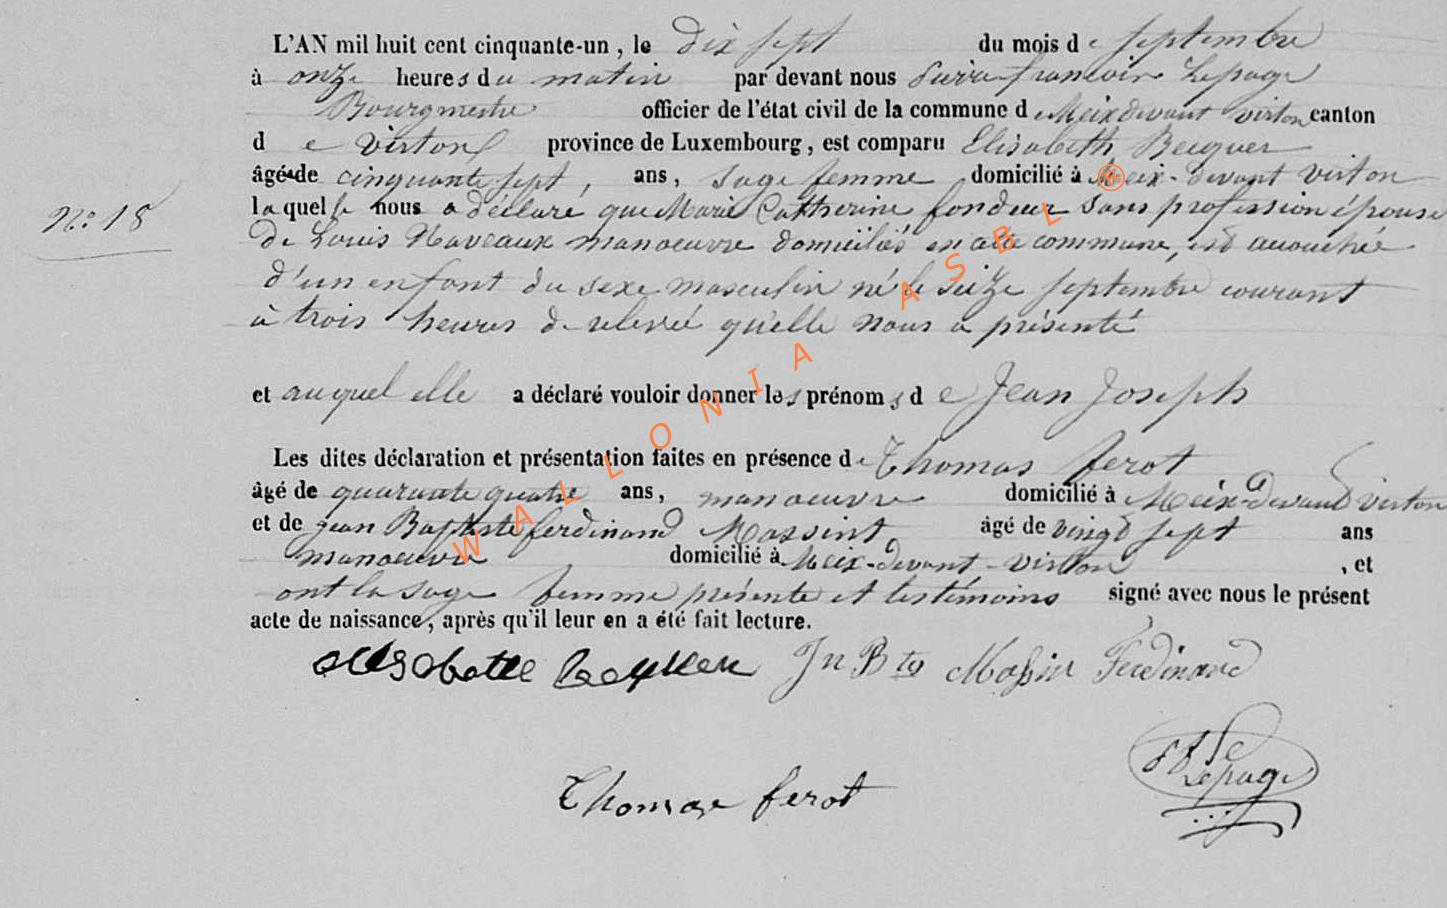 L'AN mil huit cent cinquante-un, le dix sept du mois de septembre
à onze heures du matin par devant nous Pierre françois Lepage
Bourgmestre officier de l'état civil de la commune de Meix devant virton canton
de virton province de Luxembourg, est comparu Elisabeth Becquer
âgée de cinquante sept, ans, sage femme domicilié à Meix-devant virton
N.o 18
laquelle nous a déclaré que Marie Catherine fondeur sans profession épouse
de Louis Naveaux manoeuvre domiciliés en cette commune, est accouchée
d'un enfant du sexe masculin né le seize septembre courant
à trois heures de relevée qu'elle nous a présenté
et auquel elle a déclaré vouloir donner les prénoms de Jean Joseph
Les dites déclaration et présentation faites en présence de Thomas ferot
âgé de quarante quatre ans, manoeuvre domicilié à Meix-devant virton
et de jean Baptiste ferdinand Massint âgé de vingt sept ans
manoeuvre domicilié à Meix-devant-virton, et
ont la sage femme présente et les témoins signé avec nous le présent
acte de naissance, après qu'il leur en a été fait lecture.
Jn Bte Massin Ferdinand
Lepage
Thomas ferot
WALLONIA ASBL ®